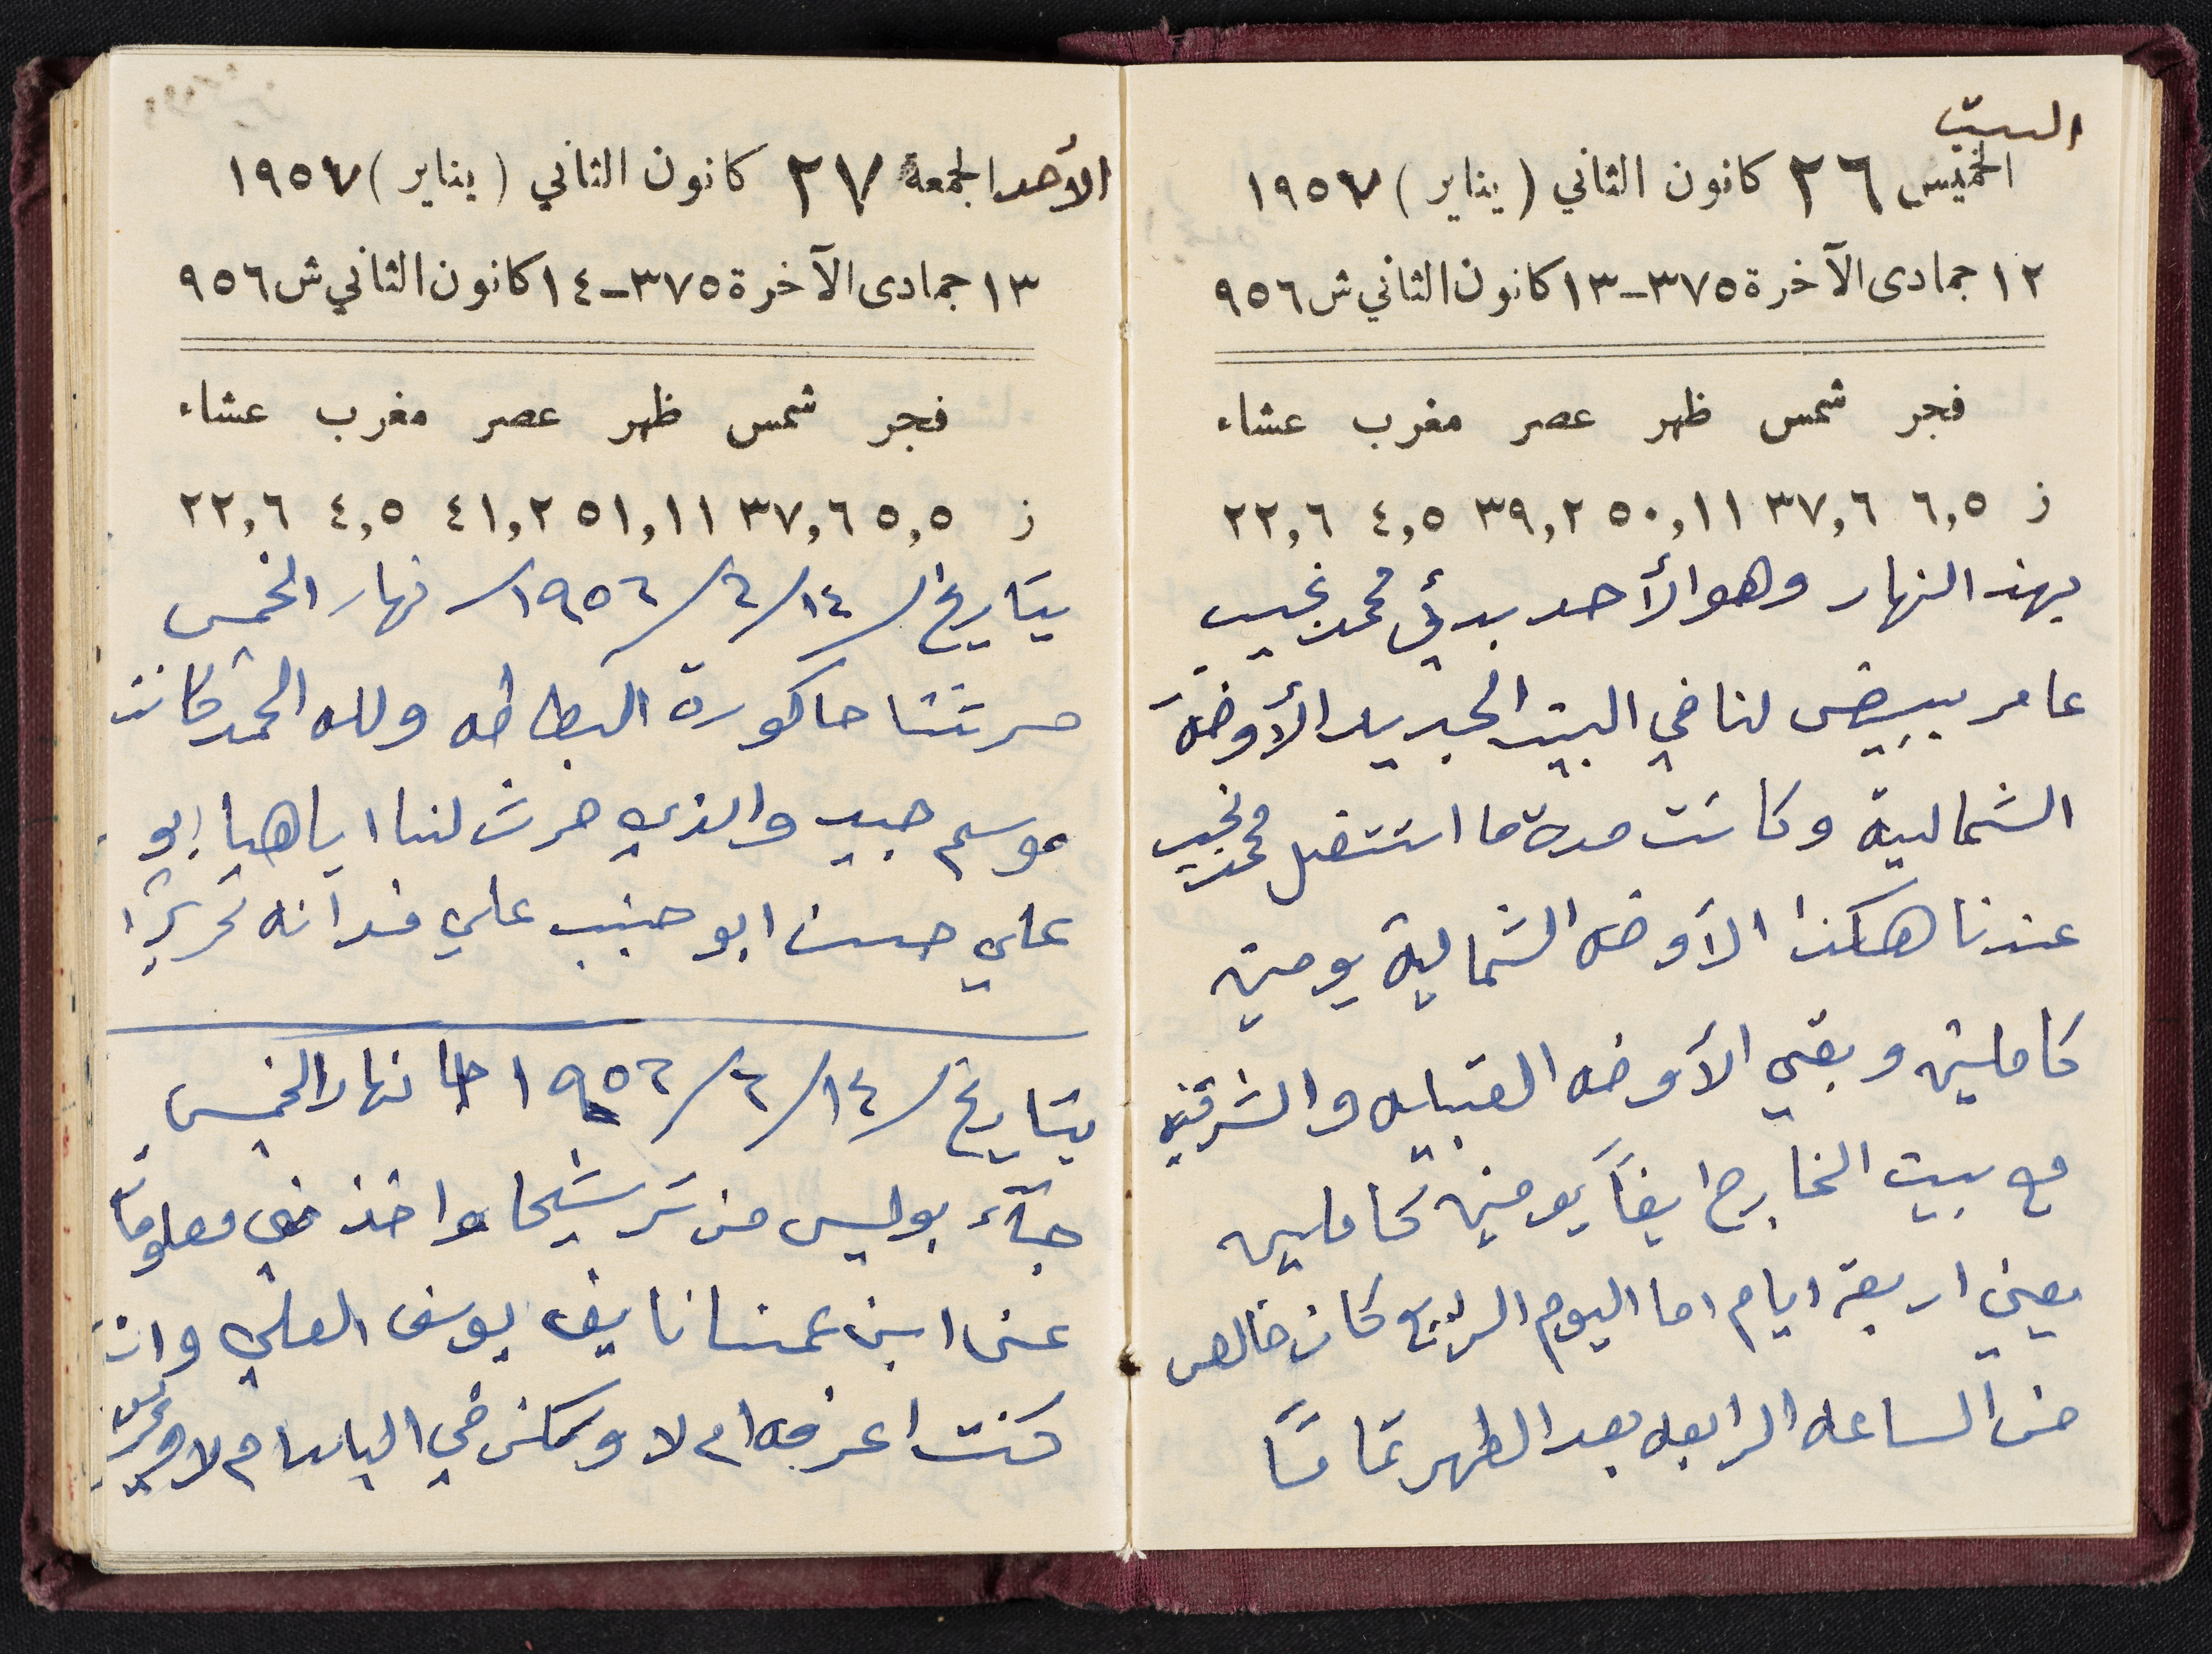 السبت
الخميس ٢٦ كانون الثاني (يناير) ١٩٥٧
١٢ جمادى الآخرة ٣٧٥-١٣ كانون الثاني ش ٩٥٦
فجر شمس ظهر عصر مغرب عشاء
ز ٦,٥ ٣٧,٦ ٥٠,١١ ٣٩,٢ ٤,٥ ٢٢,٦
بهذ النهار وهو الأحد بدئ محمد نجيب
عامر يبيض لنا في البيت الجديد الأوضة
الشمالية وكانت مدة ما اشتغل محمد نجيب
عندنا هكذا الأوضه الشمالية يومين
كاملين وبقي الأوضه القبليه والشرقيه
مع بيت الخارج ايضاً يومين كاملين
يعني اربعة ايام اما اليوم الرابع كان خالص
من الساعه الرابعه بعد الظهر تماماً
الأحد الجمعة ٢٧ كانون الثاني (يناير) ١٩٥٧
١٣ جمادى الآخرة ٣٧٥-١٤ كانون الثاني ش ٩٥٦
فجر شمس ظهر عصر مغرب عشاء
ز ٥,٥ ٣٧,٦ ٥١,١١ ٤١,٢ ٤,٥ ٢٢,٦
بتاريخ /١٤/٦/١٩٥٦/ نهار الخمس
حرثنا حاكورة البطاطه ولله الحمد كانت
موسم جيد والذي حرث لنا اياهيا ابو
علي حسن ابو حنيب علي فدانه تحريرًا
بتاريخ /١٤/٦/١٩٥٦ نهار الخمس
جآء بوليس من ترشيحا واخذ مني معلومات
عن ابن عمنا نايف يوسف العلي وان
كنت اعرفه ام لا وسكن في البلد ام لا